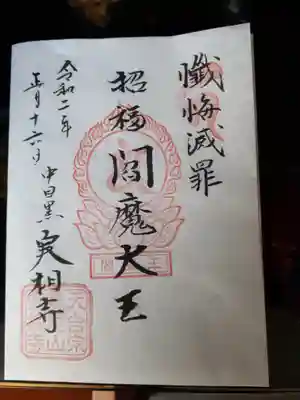 懺悔滅罪
招福 閻魔大王
令和二年
正月十六日 中目黒 実相寺